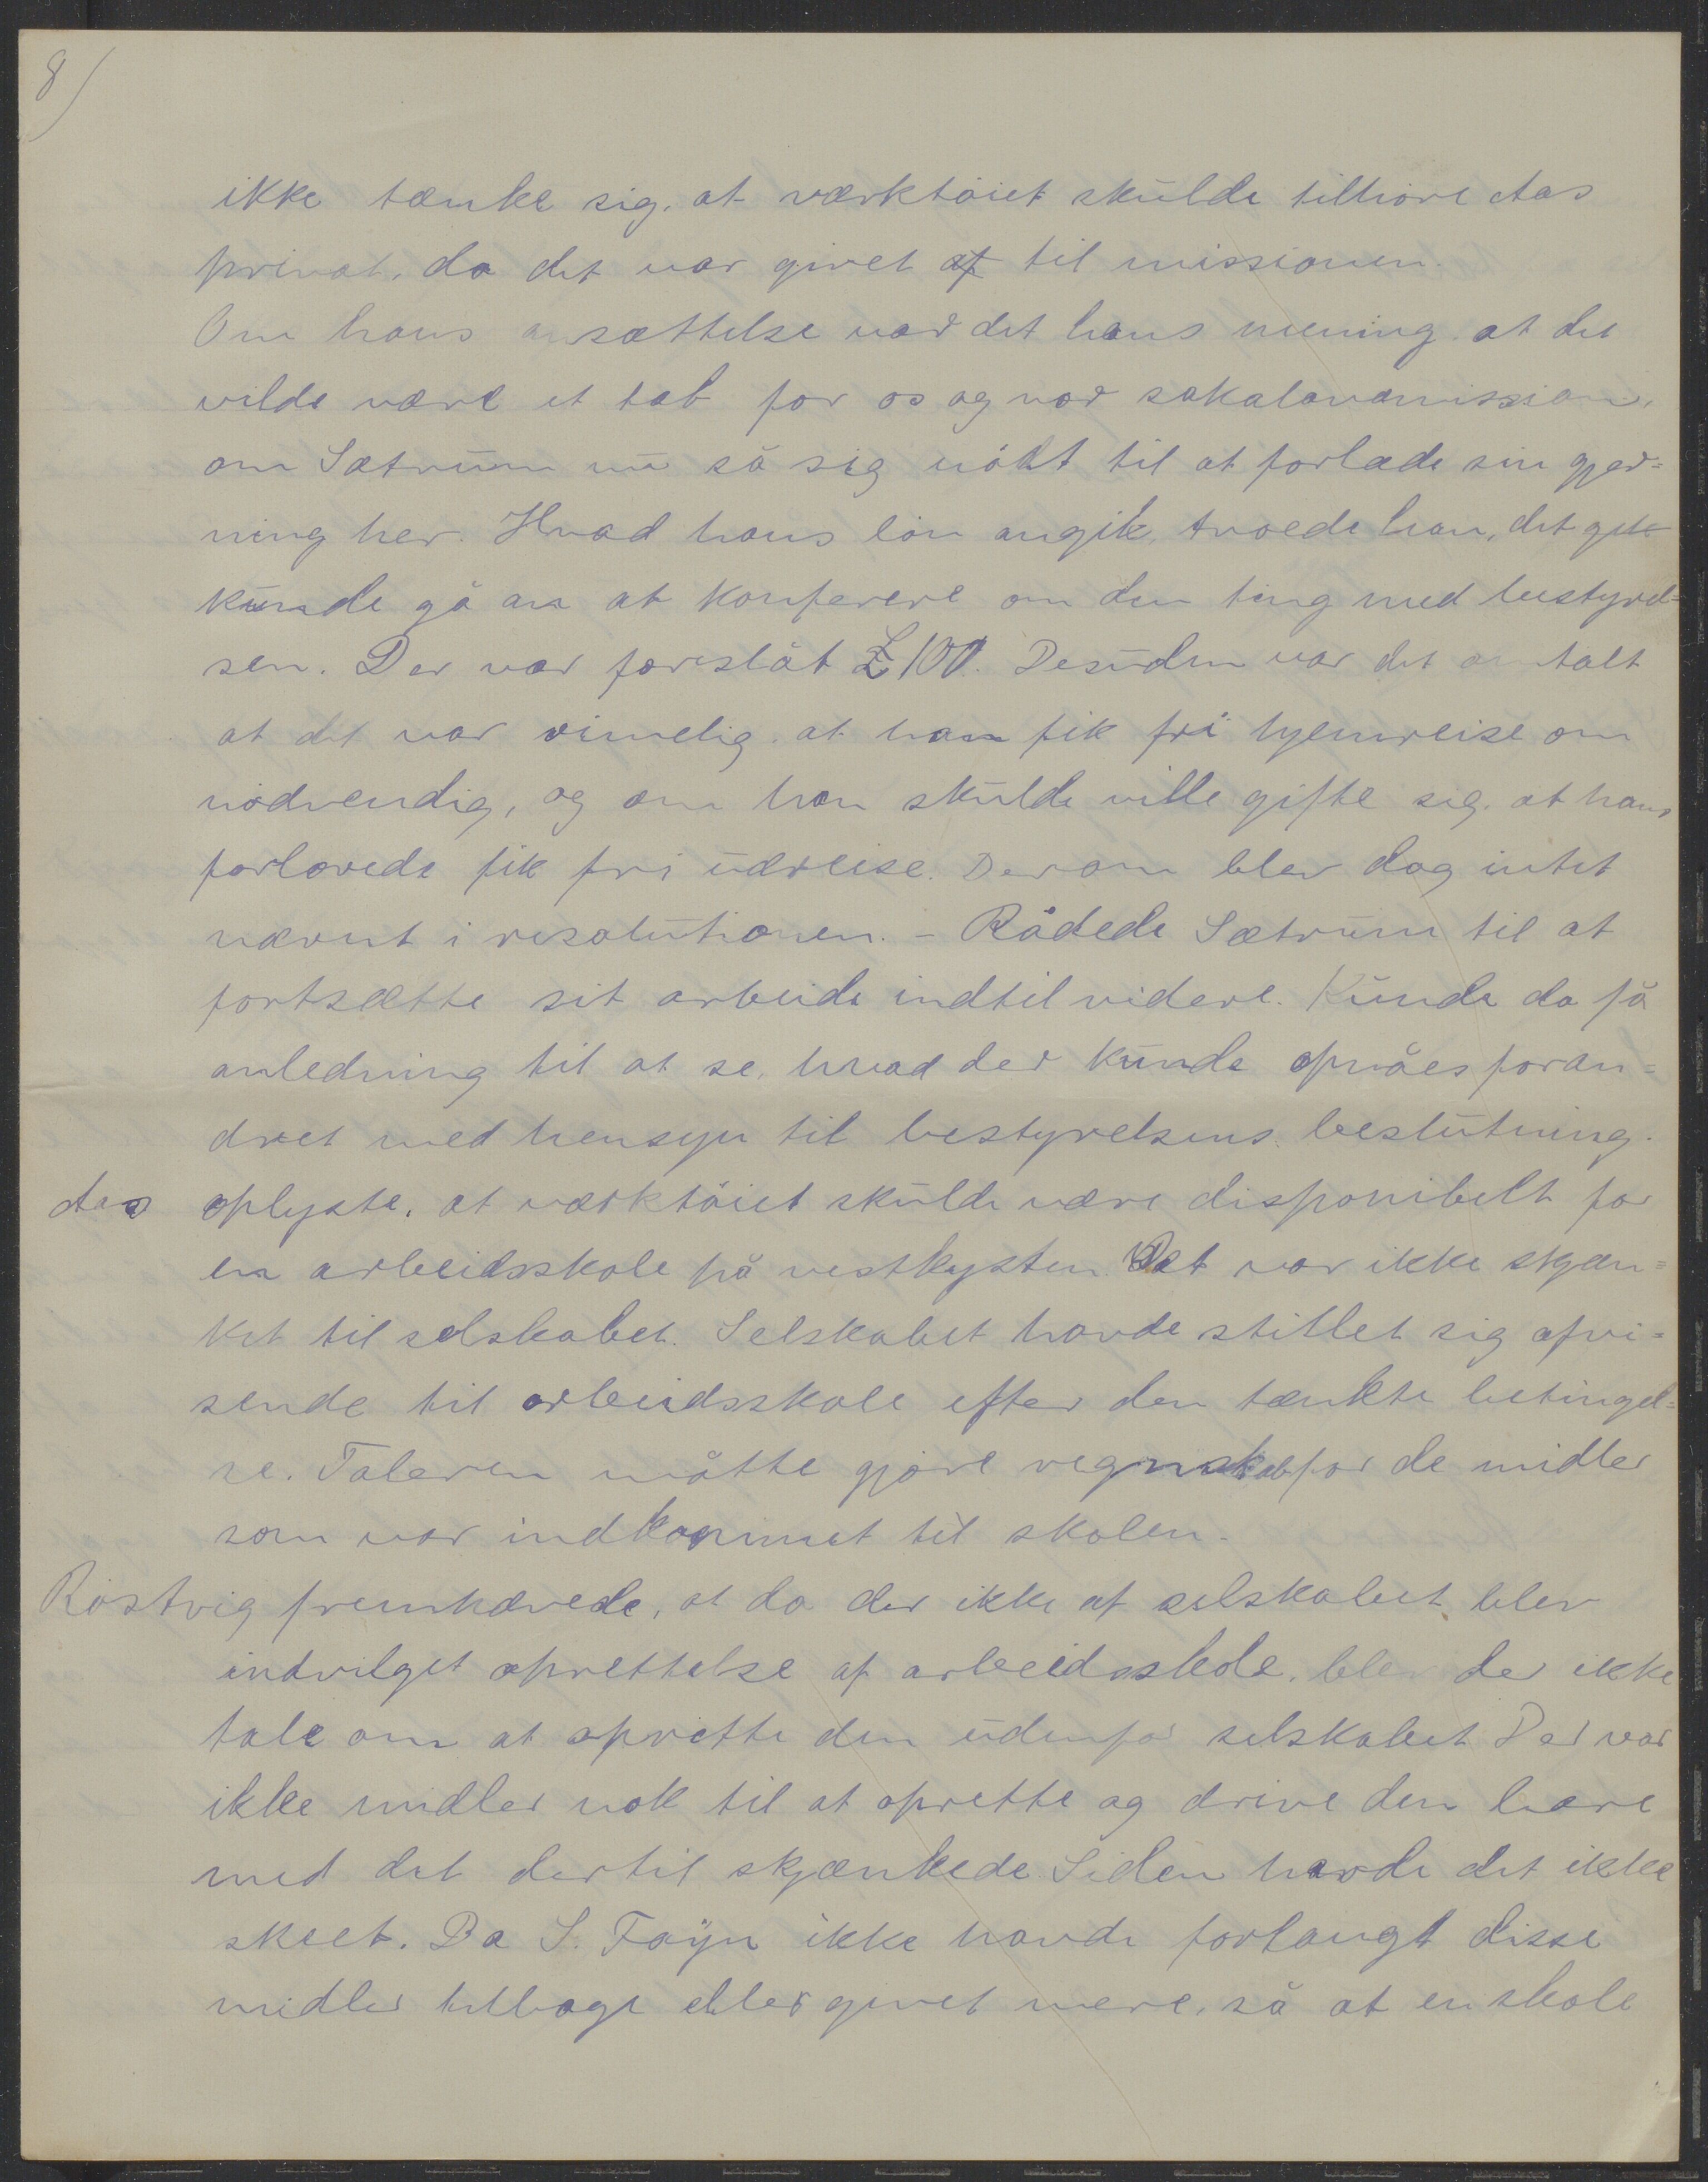 8)
ikke tænke sig, at værktöiet skulde tilhöre Aas
privat, da det var givet af til missionen.
Om hans ansættelse var det hans mening at det
vilde være et tab for os og vor sakalavamission,
om Sætrum nu så sig nödt til at forlade sin gjer=
ning her. Hvad hans lön angik, troede han, det gik
kunde gå an at konferere om den ting med bestyrel=
sen. Der var foreslåt £ 100. Desuden var det omtalt
at det var rimelig at han fik fri hjemreise om
nödvendig, og om han skulde ville gifte sig, at hans
forlovede fik fri udreise. Derom blev dog intet
nævnt i resolutionen. - Rådede Sætrum til at
fortsætte sit arbeide indtil videre. Kunde da få
anledning til at se, hvad der kunde opnåes foran=
dret med hensyn til bestyrelsens beslutning.
Aas oplyste, at værktöiet skulde være disponibelt for
en arbeidsskole på vestkysten. Det var ikke skjæn=
ket til selskabet. Selskabet havde stillet sig afvi=
sende til arbeidsskole efter den tænkte betingel=
se. Taleren måtte gjöre regnskab for de midler
som var indkommet til skolen.
Röstvig fremhævede, at da der ikke af selskabet blev
indvilget oprettelse af arbeidsskole, blev der ikke
tale om at oprette den udenfor selskabet. Der var
ikke midler nok til at oprette og drive den bare
med det dertil skjænkede. Siden havde det ikke
skeet. Da S. Foyn ikke havde forlangt disse
midler tilbage eller givet mere, så at en skole